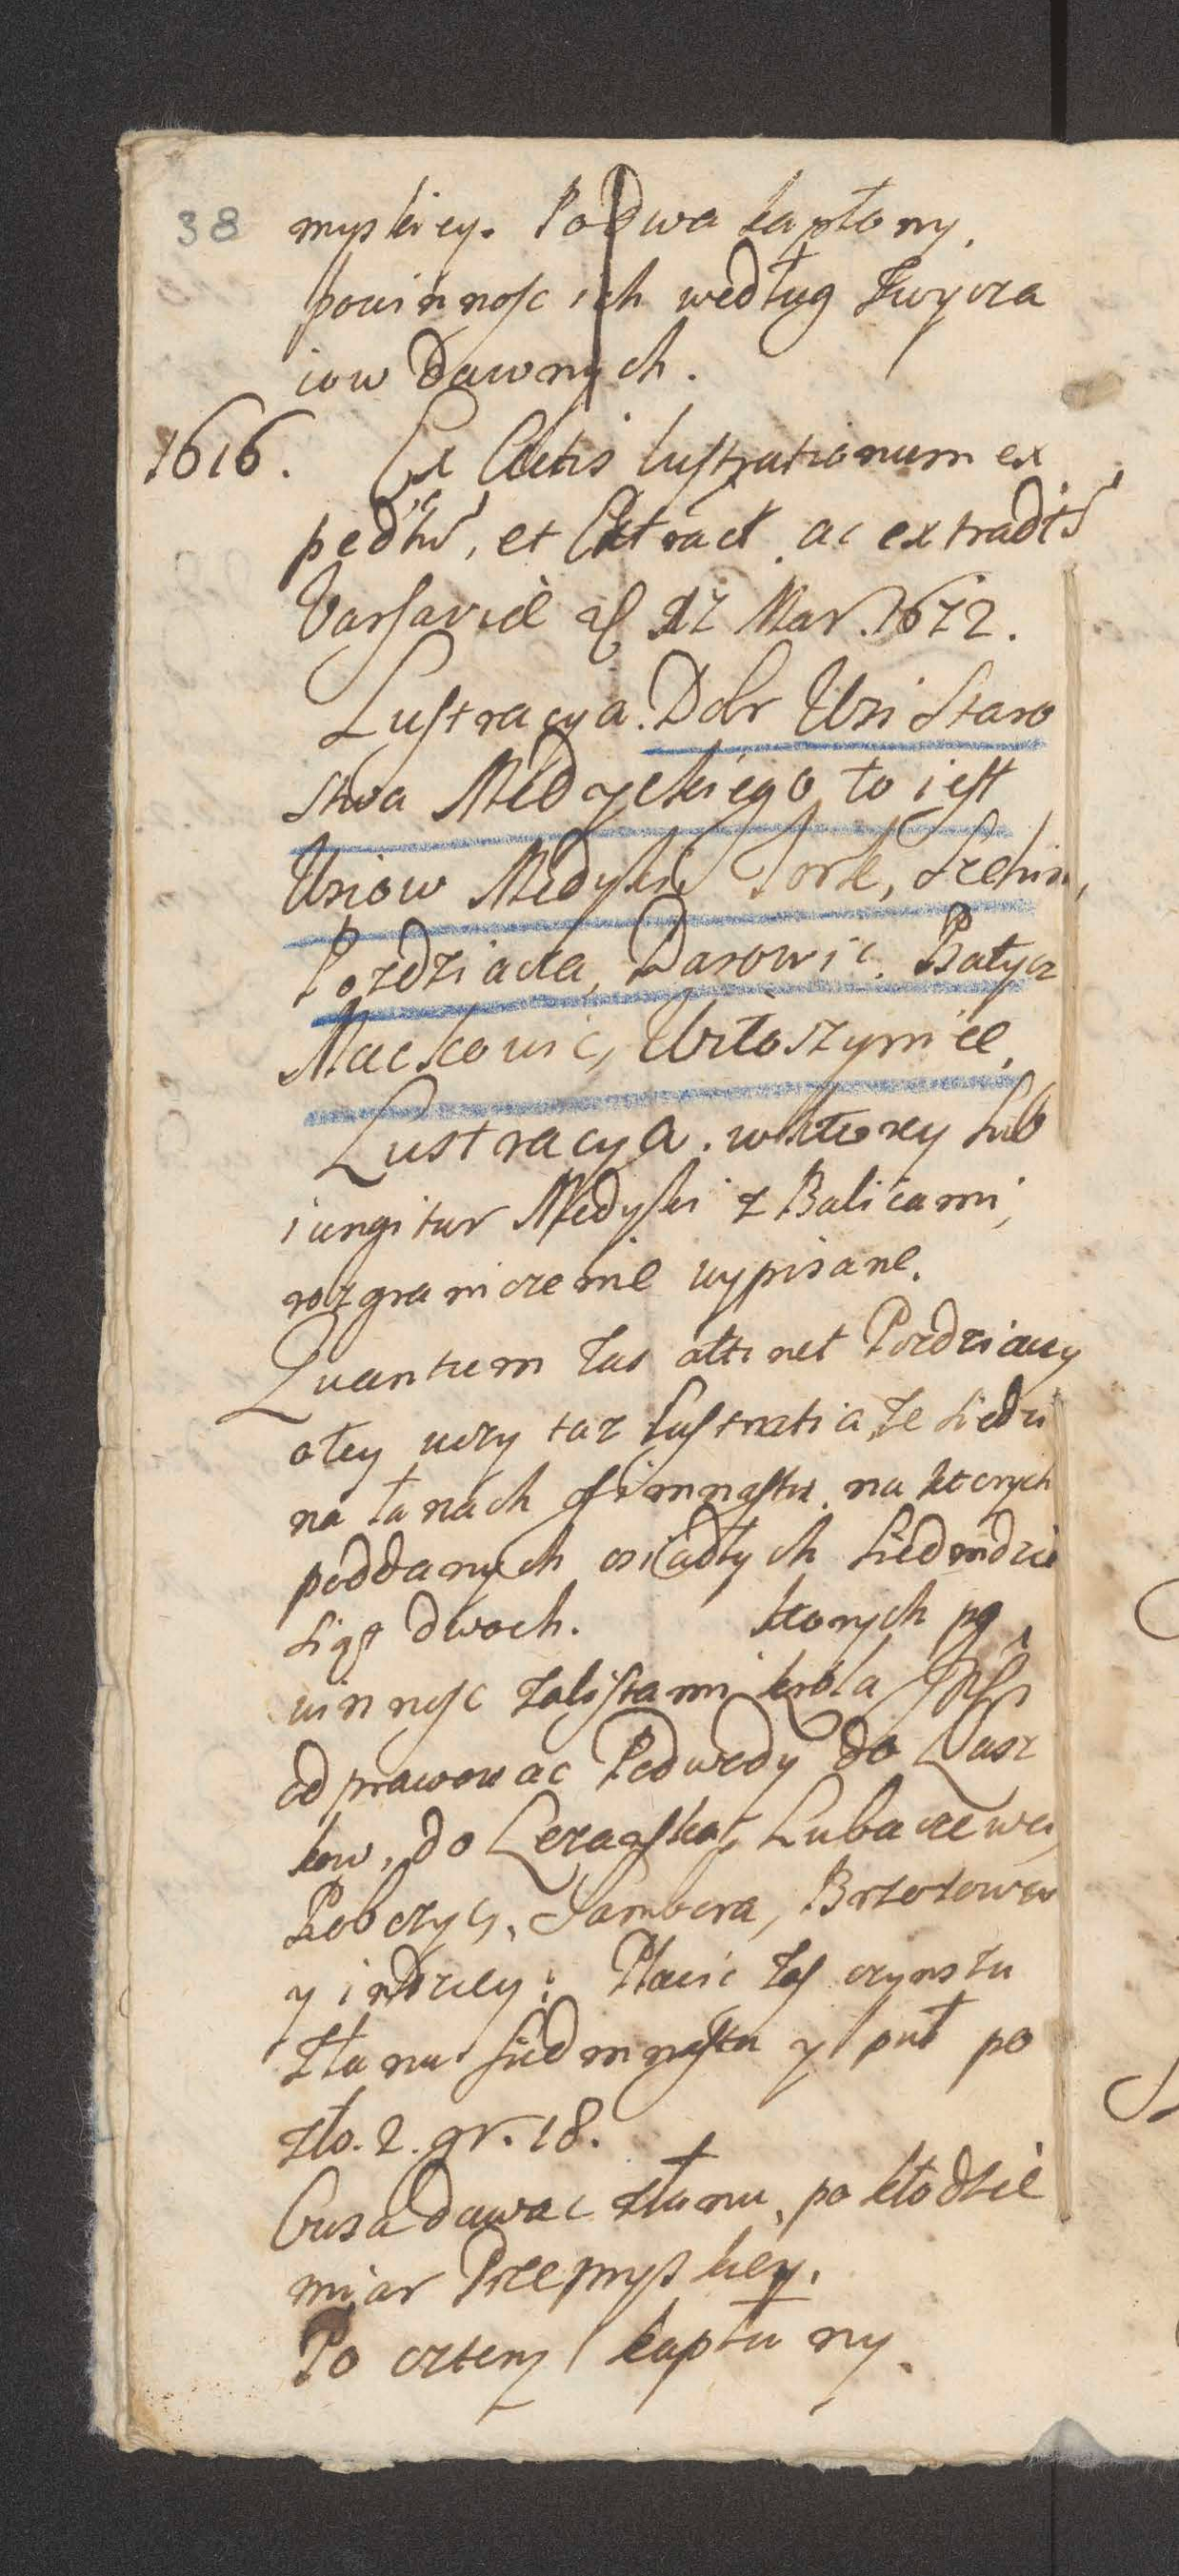 38 myskiey. Po Dwa kapłony,
powinnosc ich według Zwycza
iow Dawnych.
1616. Ex Actis lustrationum ex
et Extract. ac extradit
Varsaviæ 27 Mar. 1672.
Lustracya. Dobr Wsi Staro
stwa Medyckiego to iest
Wsiow Medyki, Tork, Szehin,
Pozdziacza, Darowic. Batycz
Mackowic, Ustoszymiec.
Lustracya. wktorey sub
iungitur Medyki z Balicami,
rozgraniczenie wypisane.
Quantum Zas attinet Pozdziaczy
otey uczy taz lustratia, Ze siedzi
na łanach na ktorych
poddanych osiadłych siedmdzie
siąt dwoch. ktorych po
winnosc zalistami krola
odprawowac Podwody do
kow, do Lezayska, Lubaczowa,
Robczyc, Sambora, Brzozowa
y indziey: Płacic Zas czynszu
złanu siedmnastu y puł po
zło. 2. gr. 18.
Owsa dawac złanu, po kłodzie
miar Przemyskiey.
Po cztery kapłuny.